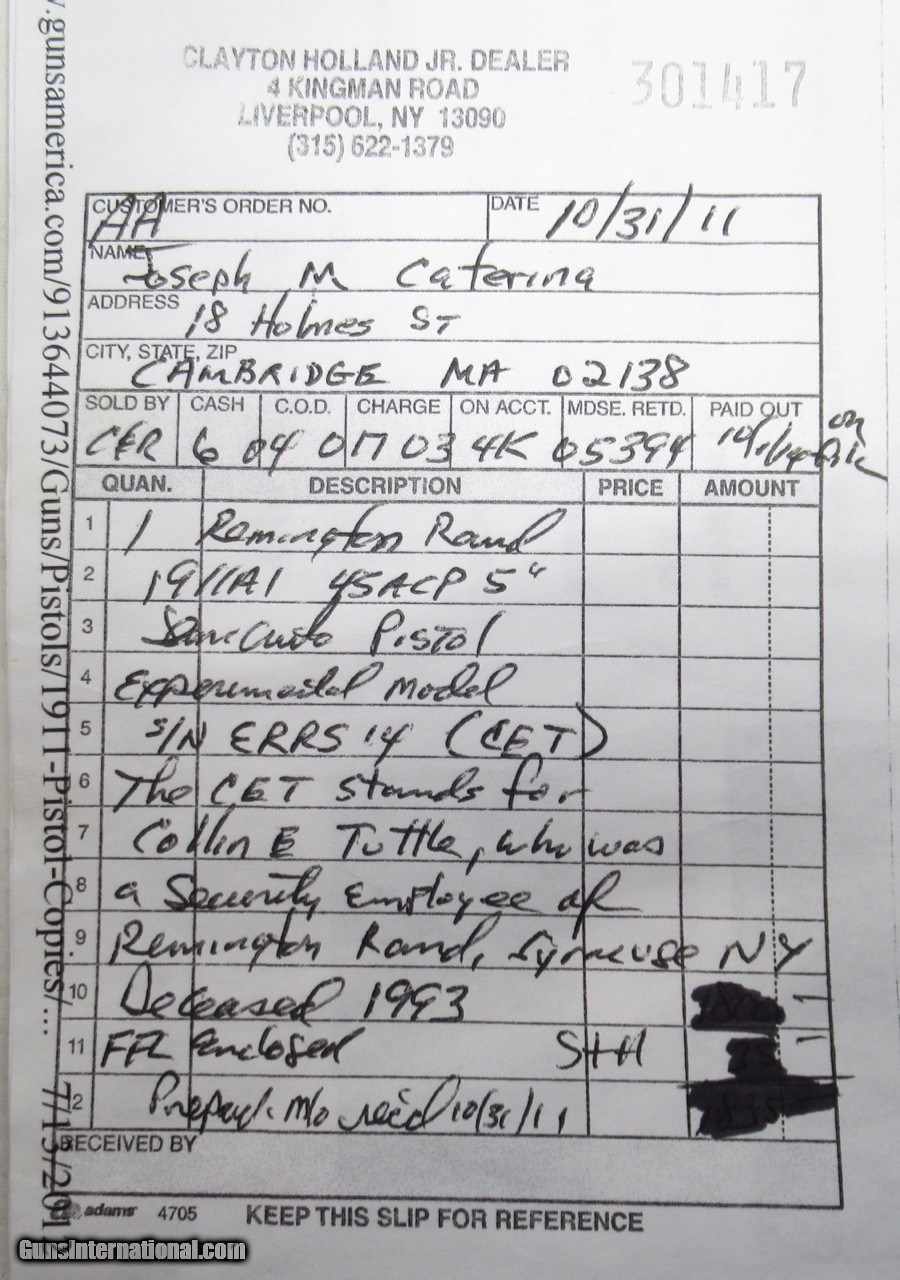 w.gunsamerica.com/913644073/Guns/Pistols/1911-Pistol-Copies/... 7/13/201
CLAYTON HOLLAND JR. DEALER
301417
4 KINGMAN ROAD
LIVERPOOL, NY 13090
(315) 622-1379
CUSTOMER'S ORDER NO. AA DATE 10/31/11
NAME Joseph M Caterina
ADDRESS 18 Holmes ST
CITY, STATE, ZIP CAMBRIDGE MA 02138
SOLD BY CASH C.O.D. CHARGE ON ACCT. MDSE. RETD. PAID OUT
CER 6 04 017 03 4K 05394 on
QUAN. DESCRIPTION PRICE AMOUNT
1 1 Remington Rand
2 1911A1 45ACP 5"
3 Pistol
4 Experimental Model
5 S/N ERRS 14 (CET)
6 The CET stands for
7 Collin E Tuttle, who was
8 a Security Employee of
9 Remington Rand, Syracuse NY
10 Deceased 1993
11 FFL Enclosed S+H
12 Prepayd. M/O rec'd 10/31/11
RECEIVED BY
adams 4705 KEEP THIS SLIP FOR REFERENCE
GunsInternational.com